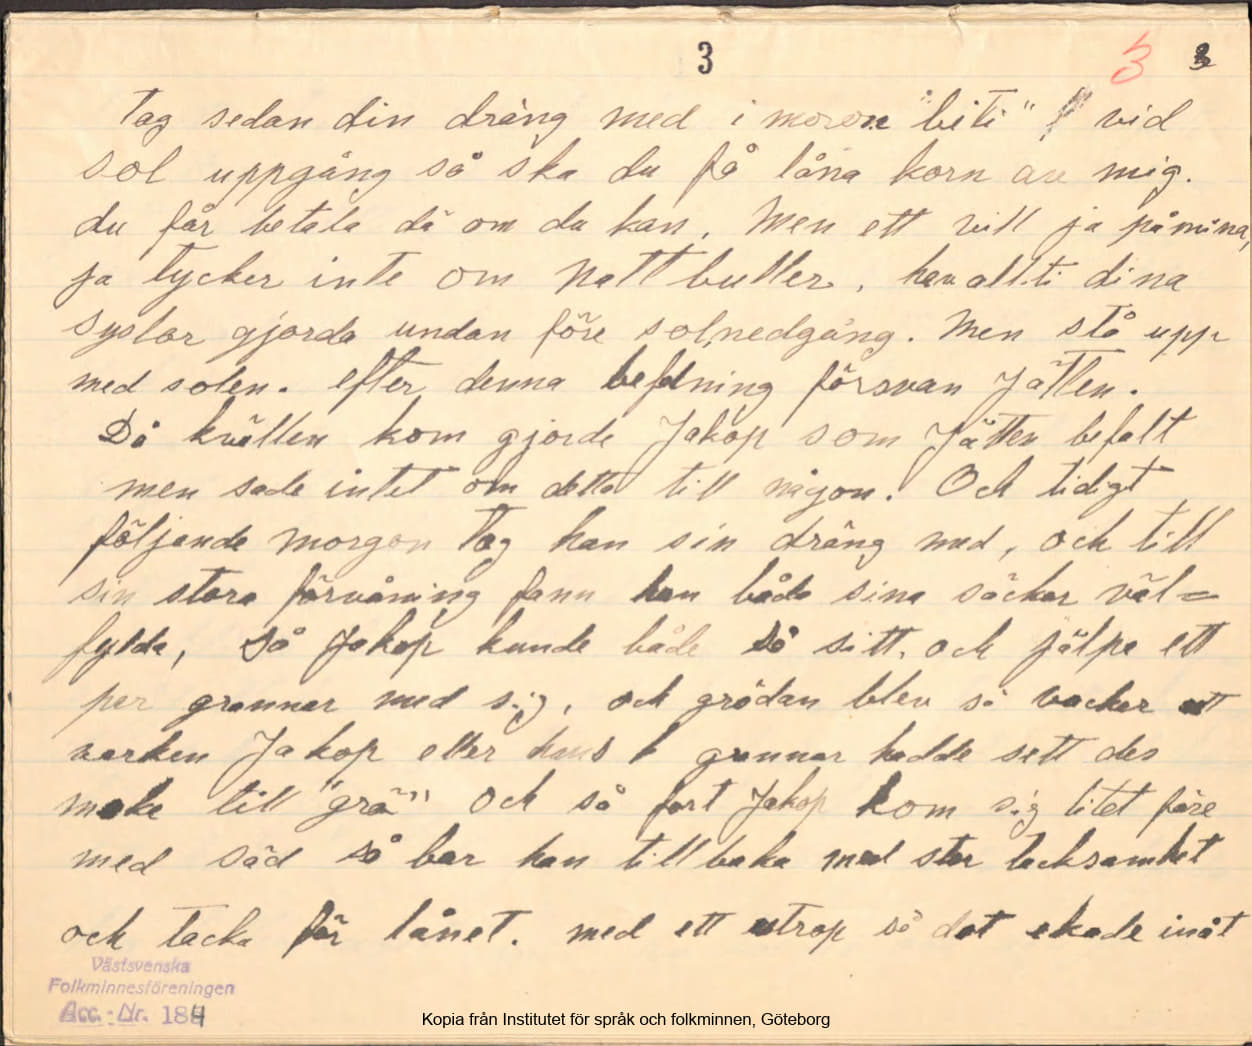 3
3
3
tag sedan din dräng med i moron "biti" vid
sol uppgång så ska du få låna korn av mig.
du får betala då om du kan. Men ett vill ja påmina,
ja tycker inte om Natt buller. hav allti dina
syslor gjorda undan före solnedgång. Men stå upp
med solen. efter denna befalning försvan Jätten.
Då kvällen kom gjorde Jakop som Jätten befalt
men sade intet om detta till någon. Och tidigt
följande morgon tog han sin dräng med, och till
sin stora förvåning fann han båda sina säckar väl=
fylda, Så Jakop kunde både så sitt. och jälpa ett
par grannar med sig. och grödan blev så vacker att
varken Jakop eller hans grannar hadde sett des
make till "grö" Och så fort Jakop kom sig litet före
med säd så bar han tillbaka med stor tacksamhet
och tacka för lånet. med ett utrop så det ekade inåt
Västsvenska
Folkminnesföreningen
Acc.-Nr. 184
Kopia från Institutet för språk och folkminnen, Göteborg